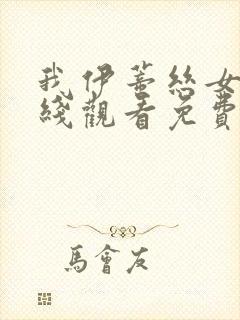 我伊蒂絲女
綫觀看免費
馬會友